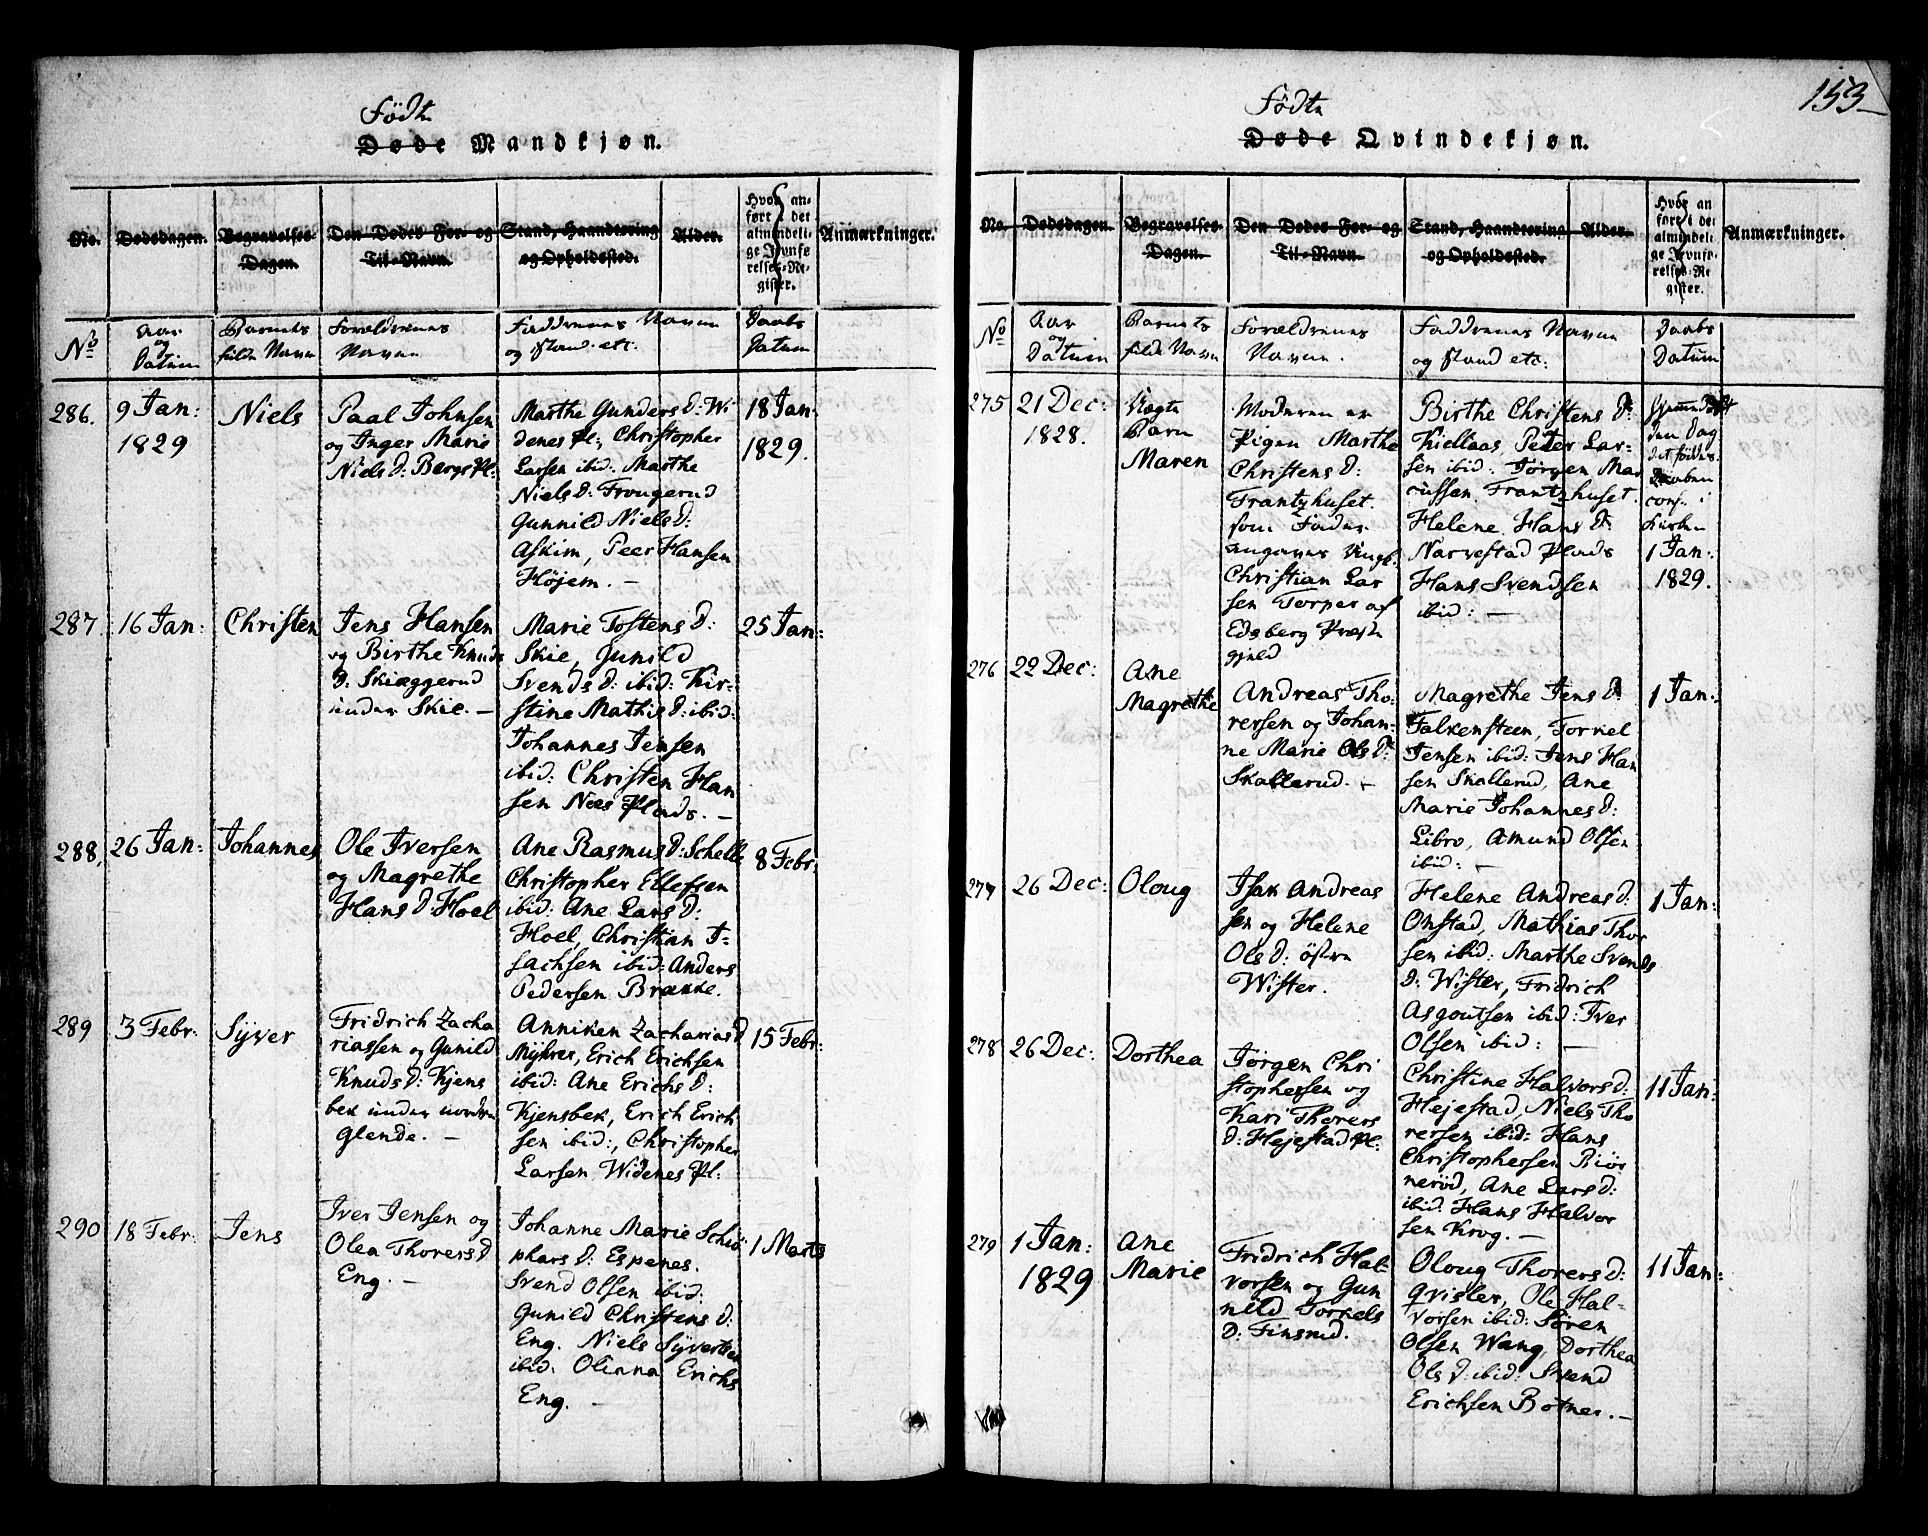 153
Født
Døde Mandkjøn.
No.
Dødsdagen.
Begravelses-
Dagen.
Den Dødes For- og
Til-Navn.
Stand, Haandtering
og Opholdssted.
Alder.
Hvor an-
ført i det
almindeli-
ge Jevnfø-
relses-Re-
gister.
Anmærkninger.
No
Aar
og
Datum
Barnets
fulde Navn
Forældrenes
Navne
Faddrenes Navne
og Stand etc.
Daabs
Datum
286.
9 Jan:
1829
Niels
Paal Johnsen
og Inger Marie
Niels D: Bergs Pl:
Marthe Gunders D: Wi
denes Pl:, Christopher
Larsen ibid: Marthe
Niels D: Frougerud
Gunnild Niels D:
Askim, Peer Hansen
Højem. –
18 Jan:
1829.
287
16 Jan:
Christen
Jens Hansen
og Birthe Knuds
D: Skiæggerud
under Skie. –
Marie Tostens D:
Skie, Gunild
Svends D: ibid: Kir-
stine Mathis D: ibid:
Johannes Jensen
ibid: Christen Han
sen Nees Plads. –
25 Jan:
288.
26 Jan:
Johannes
Ole Iversen
og Magrethe
Hans D: Hoel
Ane Rasmus D: Schelle
Christopher Ellefsen
ibid: Ane Lars D:
Hoel, Christian I-
sachsen ibid: Anders
Pedersen Brække.
8 Febr:
289
3 Febr:
Syver
Fridrich Zacha
riassen og Gunild
Knuds D: Kjens
bek under nordre
Glende. –
Anniken Zacharias D
Myhrer, Erich Erichsen
ibid: Ane Erichs D:
Kjensbek, Erich Erich
sen ibid:, Christopher
Larsen Widenes Pl:
15 Febr:
290
18 Febr:
Jens
Iver Jensen og
Olea Thorers D
Eng. –
Johanne Marie
phars D: Espenes.
Svend Olsen ibid.
Gunild Christens D:
Eng. Niels Syvertsen
ibid: Olianna Erichs
Eng. –
1 Marts
Født
Døde Qvindekjøn.
No.
Dødsdagen.
Begravelses-
Dagen.
Den Dødes For- og
Til-Navn.
Stand, Haandtering
og Opholdssted.
Alder.
Hvor an
ført i det
almindeli
ge Jevnfø-
relses-Re
gister.
Anmærkninger.
No
Aar
og
Datum
Barnets
fulde Navn
Forældrenes
Navne.
Faddrenes Navne
og Stand etc:
Daabs
Datum
275
21 Dec:
1828.
Uægte
Barn
Maren
Moderen er
Pigen Marthe
Christens D:
Frantzhuset.
som Fader
angaves Ungk.
Christian Lar
sen Torper af
Edsberg Præste
gjeld
Birthe Christens D:
Kiellaas, Peter Lar-
sen ibid: Jørgen Mar
cussen Frantzhuset.
Helene Hans D:
Narvestad Plads
Hans Svendsen
ibid: –
Hjemmedøbt
den Dag
det fødtes.
Daaben
conf. i
Kirken
1 Jan:
1829.
276
22 Dec:
Ane
Magrethe
Andreas Tho-
rersen og Johan-
ne Marie Ols D:
Skallerud. –
Magrethe Jens D:
Falkensteen, Torkel
Jensen ibid: Jens Han
sen Skallerud, Ane
Marie Johannes D:
Libro, Amund Olsen
ibid: –
1 Jan:
277
26 Dec:
Oloug
Isak Andreas
sen og Helene
Ols D: østre
Wister.
Helene Andreas D:
Onstad, Mathias Thor
sen ibid: Marthe Svends
D: Wister, Fridrich
Asgoutsen ibid: Iver
Olsen ibid: –
1 Jan:
278
26 Dec:
Dorthea
Jørgen Chri
stophersen og
Kari Thorers
D: Hejestad Pl:
Christine Halvors D:
Hejestad, Niels Tho
rersen ibid: Hans
Christophersen Biør
nerød, Ane Lars D:
ibid. Hans Halvor
sen Krog. –
11 Jan:
279
1 Jan:
1829
Ane
Marie
Fridrich Hal-
vorsen og Gun
nild Torkels
D: Finsrud.
Oloug Thorers D:
Qvisler, Ole Hal-
vorsen ibid: Søren
Olsen Wang, Dorthea
Ols D: ibid: Svend
Erichsen Botner. –
11 Jan: